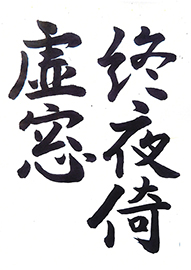 终夜倚
虚窓